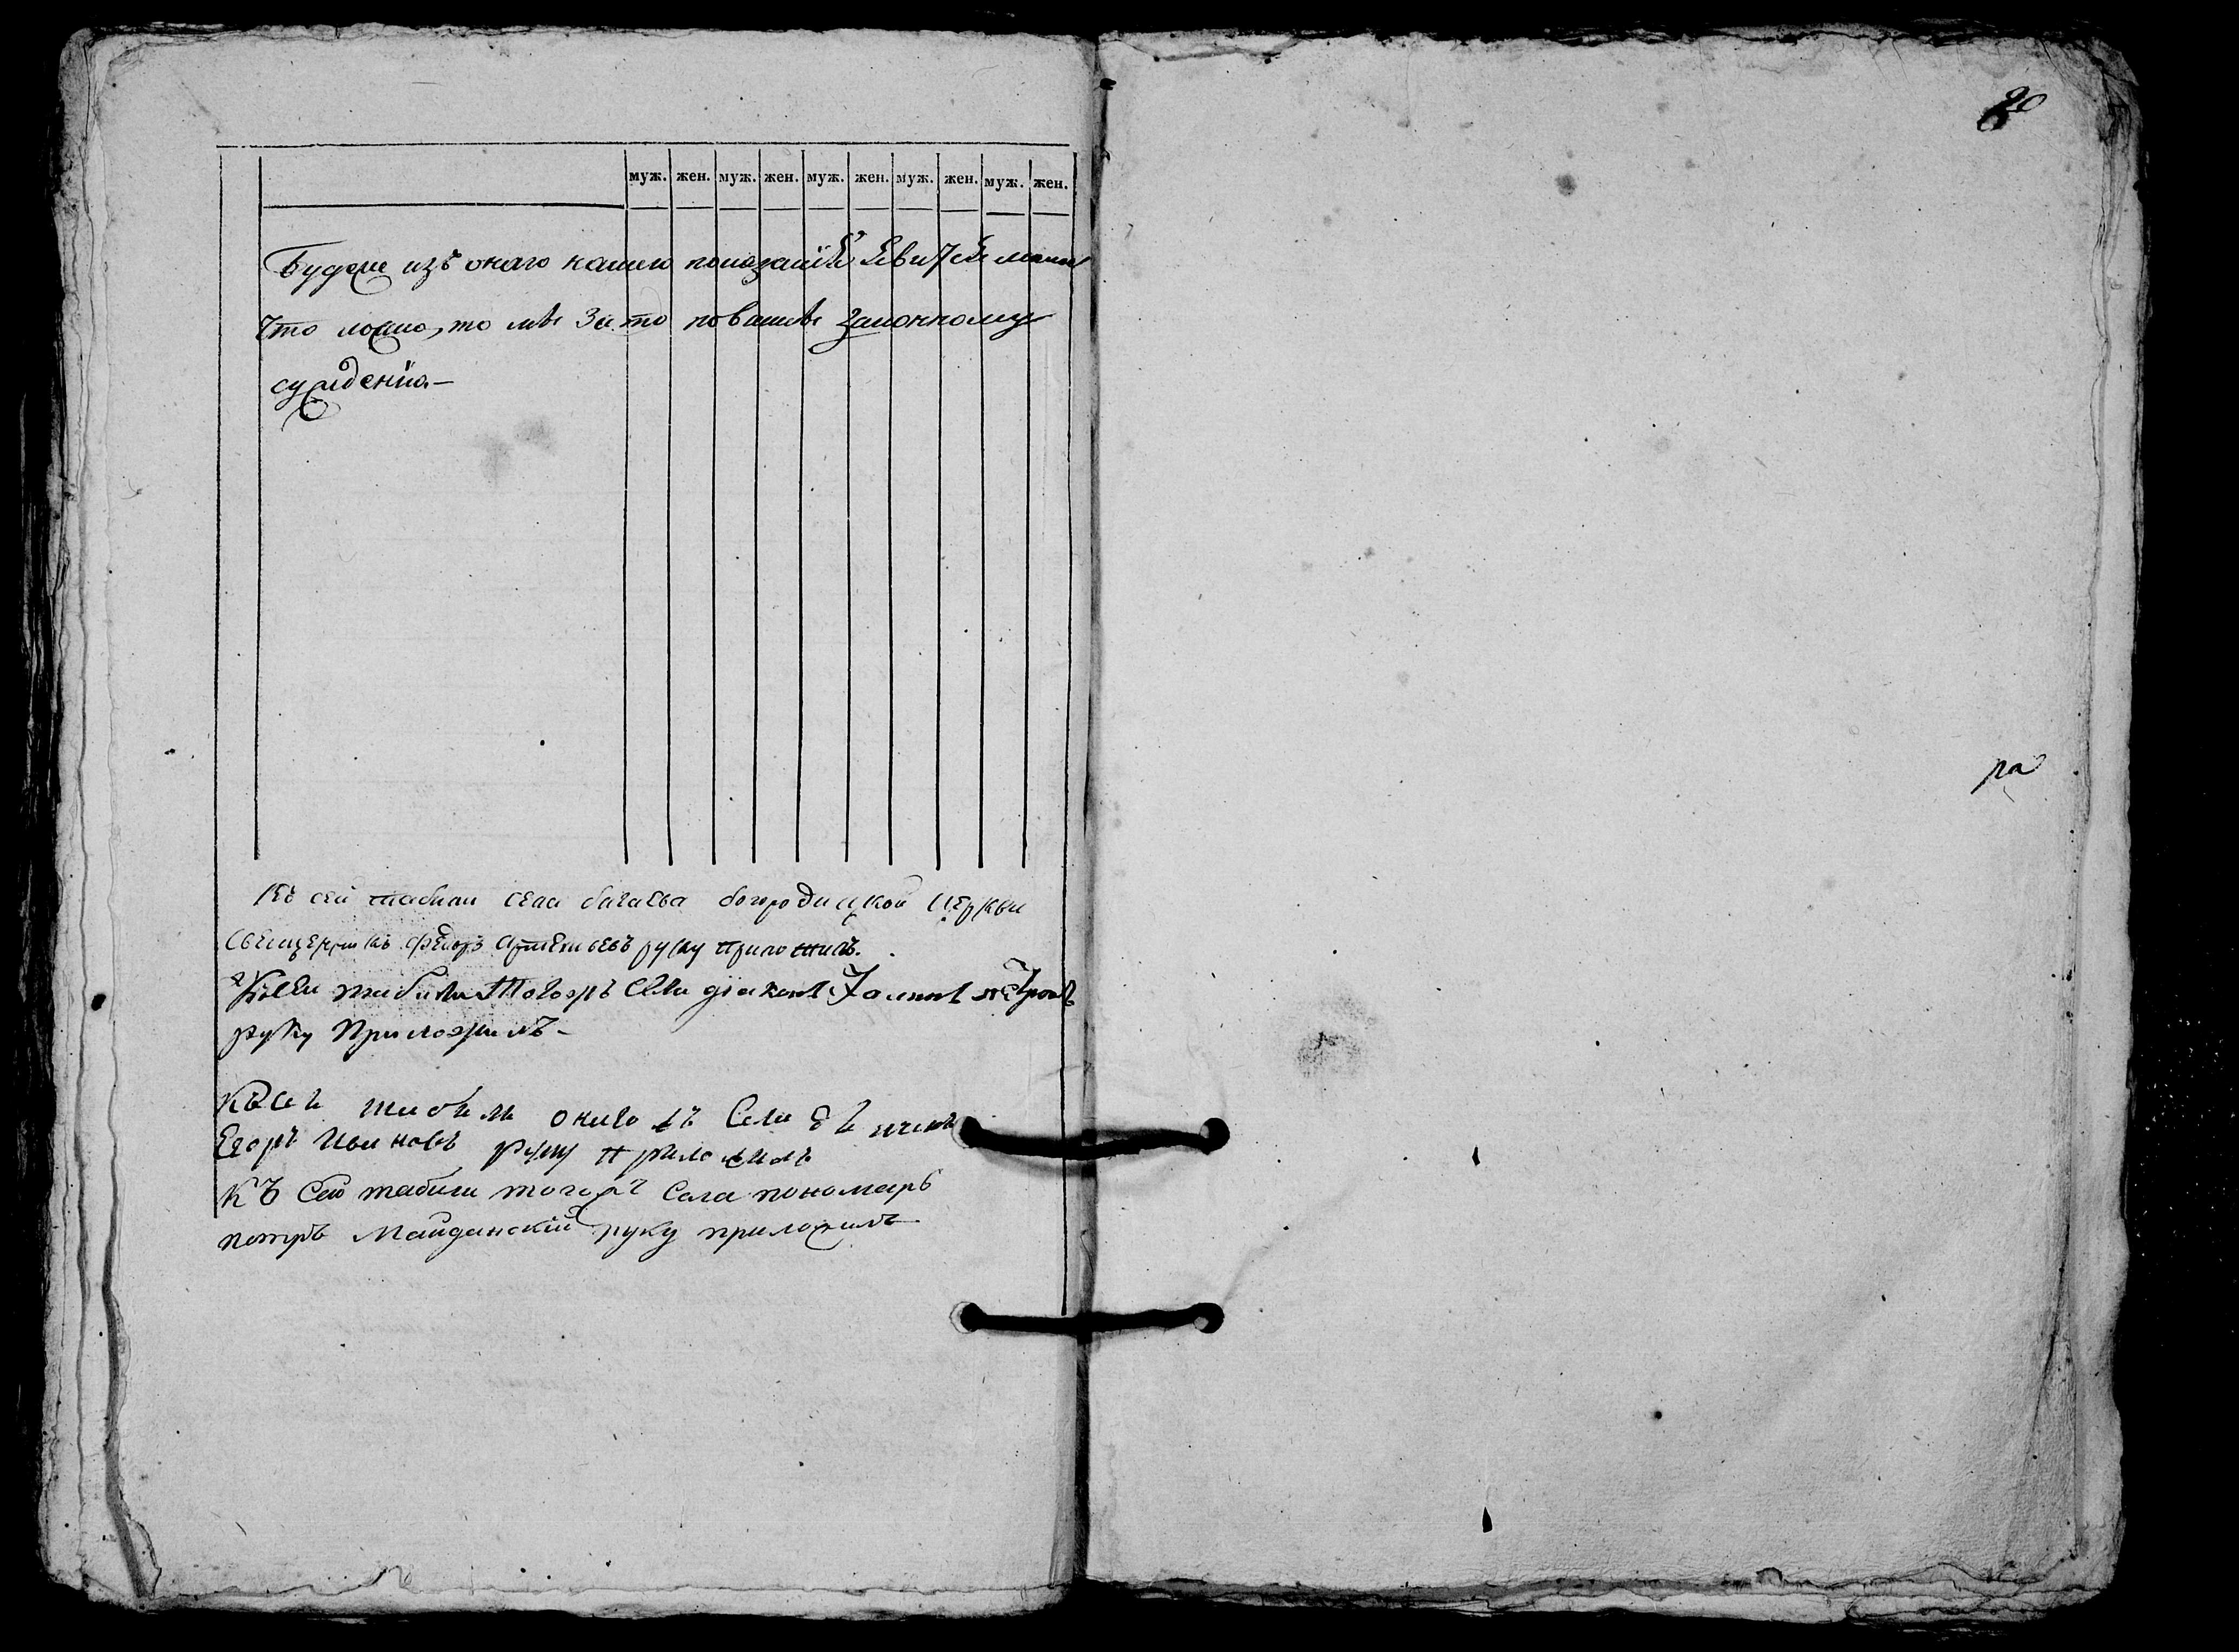 муж. жен. муж. жен. муж. жен. муж. жен. муж. жен.
Будеже изъ онаго нашего показанія явится
что ложно, то мы за то повинны законному
сужденію.—
Къ сей табели села богородицкой церкви
священникъ федоръ артемьевъ руку приложилъ.
Къ сей табели тогожъ села діаконъ Иоаннъ петровъ
руку приложилъ—
Къ сей табели онаго жъ села дьячекъ
Егоръ Ивановъ руку приложилъ
Къ сей табели тогожъ села пономарь
петръ Майданскій руку приложилъ
80
ра